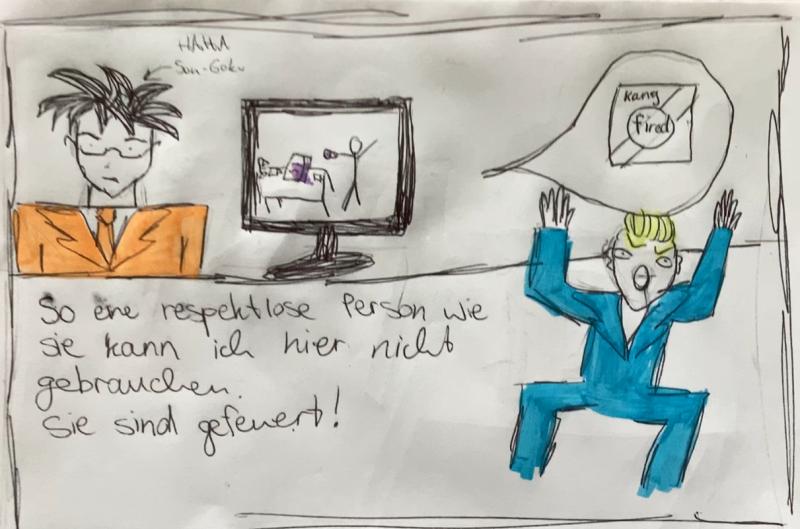 HAHA
Son-Goku
Kang
fired
So eine respektlose Person wie
sie kann ich hier nicht
gebrauchen.
Sie sind gefeuert!